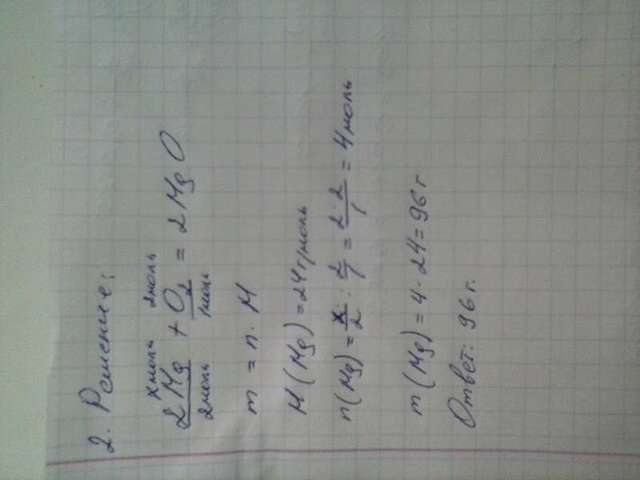 2. Решение:
x моль 2 моль
2Mg + O₂ = 2MgO
2 моль 1 моль
m = n · M
M(Mg) = 24 г/моль
n(Mg) = x/2 : 2/1 = 2·2/1 = 4 моль
m(Mg) = 4 · 24 = 96 г
Ответ: 96 г.